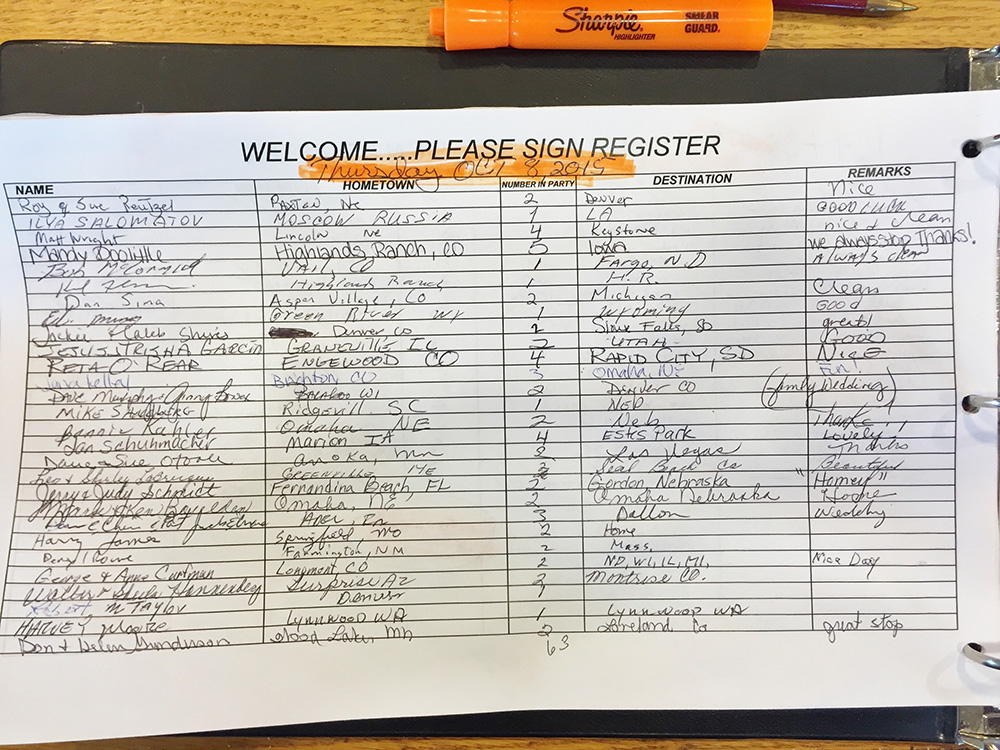 Sharpie SMEAR GUARD.
HIGHLIGHTER
WELCOME.....PLEASE SIGN REGISTER
Thursday OCT 8 2015
NAME HOMETOWN NUMBER IN PARTY DESTINATION REMARKS
Roy & Sue PAXTON, NE 2 Denver Nice
ILYA SALOMATOV MOSCOW RUSSIA 1 LA GOOD LUCK
Matt Wright Lincoln Ne 4 Keystone nice & clean
Mandy Doolittle Highlands Ranch, CO 5 Iowa we always stop Thanks!
Bob McCormick VAIL, CO 1 Fargo, N.D Always clean
Highlands Ranch 1 H.R.
Dan Sina Aspen Village, CO 2 Michigan Clean
Green River WY 1 Wyoming Good
Jackie & Caleb Denver CO 2 Sioux Falls, SD great!
JESUS/TRISHA GARCIA GRANEVILLE IL 2 UTAH Good
RETA O'REAR ENGEWOOD CO 4 RAPID CITY, SD NICE
Brighton, CO 3 Omaha, NE Fun!
Dave Murphy & WI 2 Denver CO (Family Wedding)
MIKE Ridgevill SC NEB
Bonnie Kahler Omaha NE 2 Neb Thanks!
Dan Schuhmacher Marion IA 4 Estes Park Lovely
Dave & Sue O'Toole Anoka, Mn 2 Las Vegas Thanks
Leo & Shirley GREENVILLE, ME Seal Beach Ca Beautiful
Jerry & Judy Schmidt Fernandina Beach, FL 2 Gordon, Nebraska "Homey"
Omaha, NE 2 Omaha Nebraska Home
3 Dalton Wedding
Harry James Springfield, MO 2 Home
Daryl Rowe Farmington, NM 2 Mass.
George & Anne Curfman Longmont, CO 2 ND, WI, IL, MI, Nice Day
Walber & Sheila Hannenberg Surprise Az 2 Montrose CO.
Robert M Taylor Denver 1
HARVEY Moore LYNNWOOD WA 1 LYNNWOOD WA
Don & Helen Gunderson Wood Lake, Mn 2 Loveland Co great stop
63